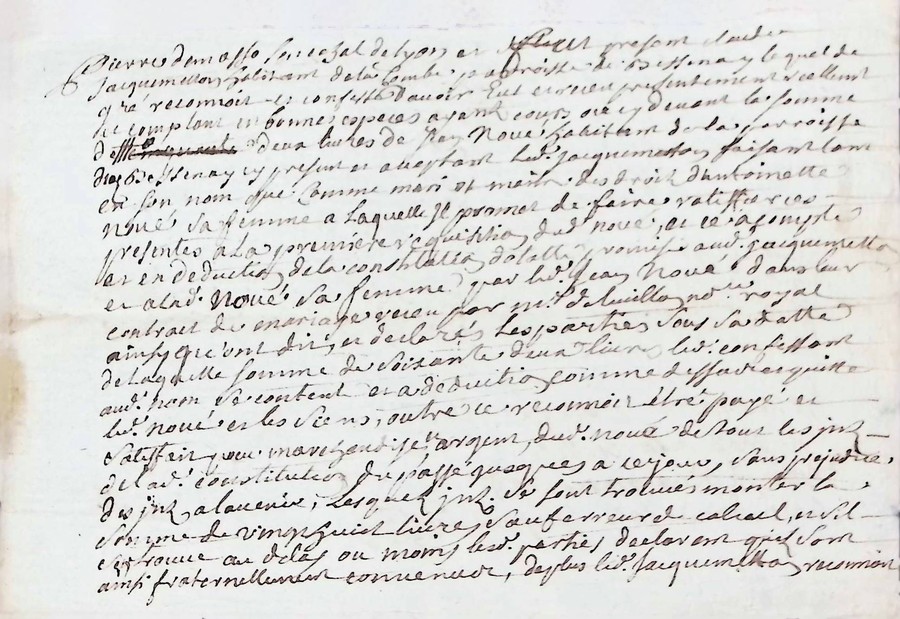 Pierre demasso Senechal de Lyon et present claude
Jacquemetton habitant de la Combe parroisse de Bessenay lequel de
gré reconnoit et confesse d'avoir eut et receu presentement reellement
et comptant en bonnes especes ayant cours ou cy devant la somme
de deux livres de Jean Noué habitant de la parroisse
dud. Bessenay cy present et acceptant led. Jacquemetton faisant tant
en son nom que comme mari et maitre des droit d'antoinette
noué sa femme a laquelle je promet de faire ratiffier ces
presentes a la premiere requisition dud. noué, et ce a compte
et en deduction de la constitution dotalle promise aud. Jacquemetton
et a lad. Noué sa femme par led. Jean Noué dans leur
contrat de mariage receu par me. not.re royal
ainsy qu'ont dit, et declarés les parties sous sa datte
de laquelle somme de soixante deux livres led. confessant
aud. nom se content et a deduction comme dessus en quitte
led. noué et les siens, outre ce reconnoit être payé et
satisfait, argent, dud. noué de tout les jnt.
de lad. constitution du passé jusques a ce jour, sans prejudice
des jnt. a lavenir, lesquels jnt. se sont trouvés monter la
somme de vingt huict livres, sauf erreur de calcul, et sil
se trouve au dela ou moins lesd. parties declarent quel sont
ainsi fraternellement convenues, deplus led. Jacquemetton reconnoit